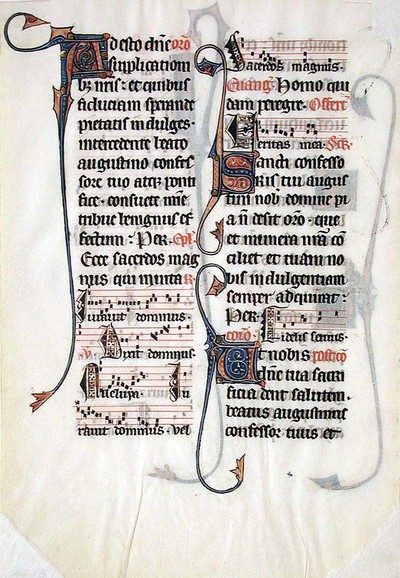 Adesto dne oro
supplicationi
bz nris: et quibus
fiduciam sperande
pietatis indulges.
intercedente beato
augustino confes
sore tuo atqz ponti
fice. consuete mise
ribue benignus ef
fectum. Per. Epl.
Ecce sacerdos mag
nus qui in vita R.
Iuravit dominus.
V. Dixit dominus.
Alleluya. Iu
ravit dominus. vel
Sacerdos magnus.
Evang. Homo qui
dam peregre. Offert.
Veritas mea. Secr.
Sancti confesso
ris tui augus
tini nob domine pi
a n desit oro. que
et munera nra con
ciliet et tuam no
bis indulgentiam
semper adquirat.
Per. Fidelis servus.
Ut nobis postco
dne tua sacri
ficia dent salutem.
beatus augustinus
confessor tuus et